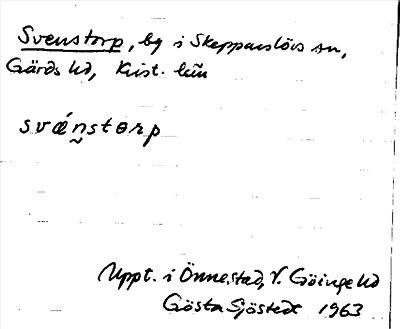 Svenstorp, by i Skepparslövs sn,
Gärds hd, Krist. län
svǽn̬storp
Uppt. i Önnestad, V. Göinge hd
Gösta Sjöstedt 1963